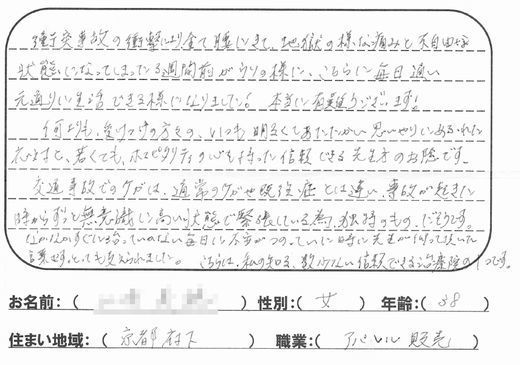 衝突事故の衝撃により全て腫にきて、地獄の様な痛みと不自由な
状態になってしまっている週間前がウソの様に、こちらに毎日通い
元通りに生活できる様になりました!本当に有難うございます!
何よりも、受けつけの方々の、いつも明るくてあたたかい思いやりにあふれた
応対と、若くても、ホスピタリティの心を持った信頼できる先生方のお陰です。
交通事故でのケガは、通常のケガや既往症とは違い、事故が起きた
時からずっと無意識に高い状態で緊張している為、独特のもの、だそうです。
なかなかすぐに治っていかない毎日に不安がつのっていた時に先生が仰って頂いた
言葉です。とても支えられました。こちらは、私の知る、数少ない信頼できる治療院の1つです。
お名前:( ) 性別:( 女 ) 年齢:( 38 )
住まい地域:( 京都府下 ) 職業:( アパレル販売 )